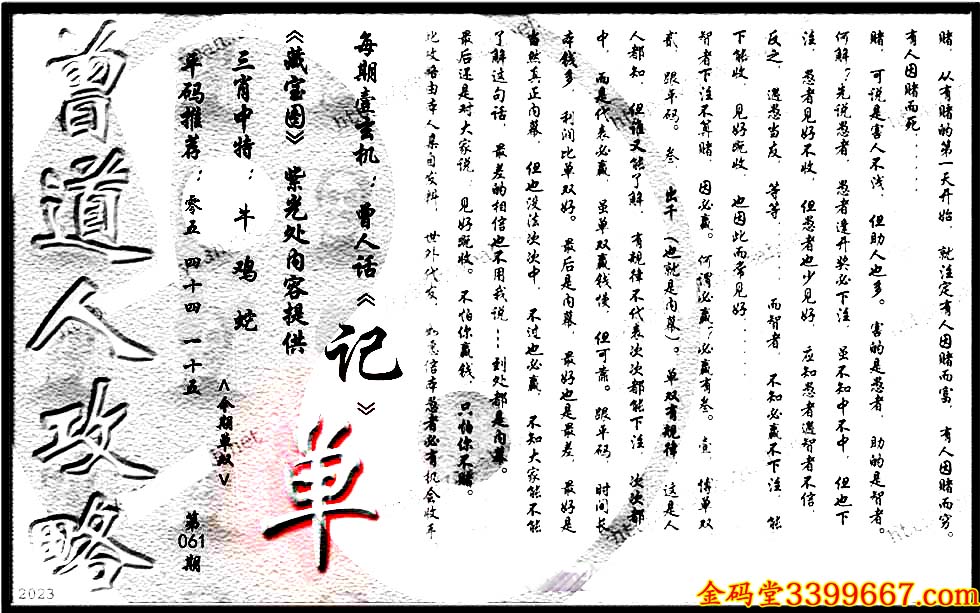 赌，从有赌的第一天开始，就注定有人因赌而富，有人因赌而穷。
有人因赌而死……
赌，可说是害人不浅，但助人也多。害的是愚者，助的是智者。
何解？先说愚者，愚者逢开奖必下注，虽不知中不中，但也下
注，愚者见好不收，但愚者也少见好，应知愚者遇智者不信，
反之，遇愚当友，等等……而智者，不知必赢不下注，能
下能收，见好既收，也因此而常见好……
智者下注不算赌，因必赢。何谓必赢？必赢有叁。壹，博单双
贰，跟平码。叁，出千（也就是内幕）。单双有规律，这是人
人都知，但谁又能了解，有规律不代表次次都能下注，次次都
中，而是代表必赢，虽单双赢钱慢，但可靠。跟平码，时间长
本钱多，利润比单双好。最后是内幕，最好也是最差，最好是
当然真正内幕，但也没法次次中，不过也必赢，不知大家能不
了解这句话，最差的相信也不用我说……到处都是内幕。
最后还是对大家说，见好既收。不怕你赢钱，只怕你不赌。
此攻略由本人亲自发辨，世外代友，如意信本愚者必有机会收年
每期壹玄机：曾人话《记单》
《藏宝图》紫光处内容提供
三肖中特：牛 鸡 蛇
单码推荐：零五 四十四 一十五
<今期单双>
第061期
曾道人攻略
2023
金码堂3399667.com